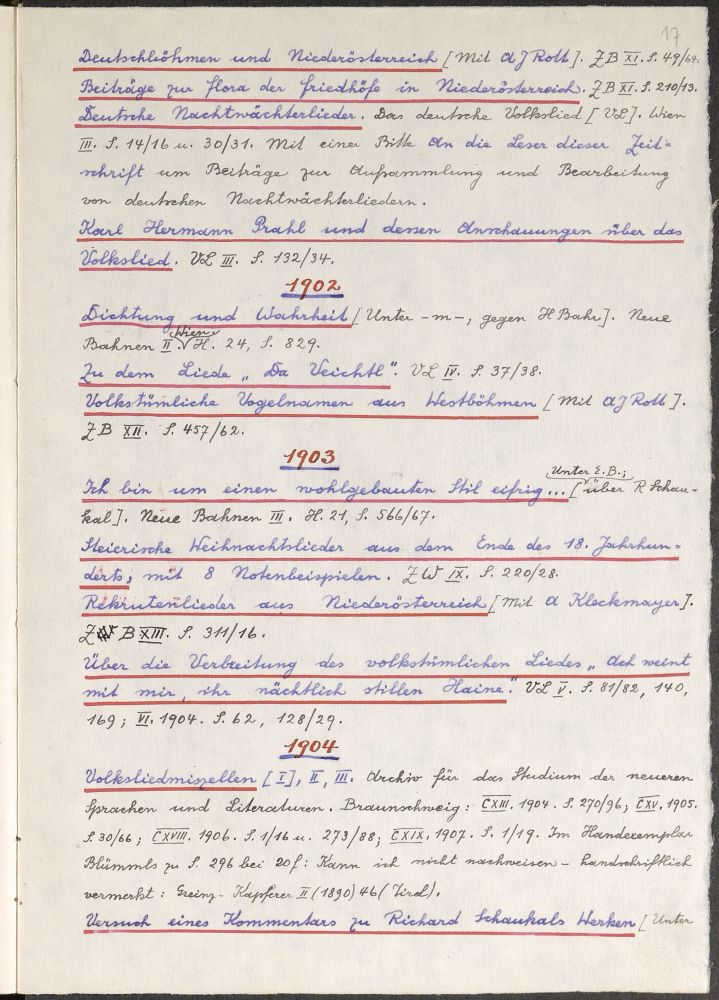 17
Deutschböhmen und Niederösterreich [Mit AJ Rott]. ZB XI. S. 49/64.
Beiträge zur Flora der Friedhöfe in Niederösterreich. ZB XI. S. 210/13.
Deutsche Nachtwächterlieder. Das deutsche Volkslied [VL]. Wien
III. S. 14/16 u. 30/31. Mit einer Bitte an die Leser dieser Zeit=
schrift um Beiträge zur Aufsammlung und Bearbeitung
von deutschen Nachtwächterliedern.
Karl Hermann Prahl und dessen Anschauungen über das
Volkslied. VL III. S. 132/34.
1902
Dichtung und Wahrheit [Unter -m-, gegen H Bahr]. Neue
Bahnen II. Wien H. 24, S. 829.
Zu dem Liede „Da Veichtl“. VL IV. S. 37/38.
Volkstümliche Vogelnamen aus Westböhmen [Mit AJ Rott].
ZB XII. S. 457/62.
1903
Ich bin um einen wohlgebauten Stil eifrig... [Unter E.B.; über R Schau=
kal]. Neue Bahnen III. H. 21, S. 566/67.
Steierische Weihnachtslieder aus dem Ende des 18. Jahrhun=
derts, mit 8 Notenbeispielen. ZW IX. S. 220/28.
Rekrutenlieder aus Niederösterreich [Mit A Kleckmayer].
Z B XIII. S. 311/16.
Über die Verbreitung des volkstümlichen Liedes „Ach weint
mit mir, ihr nächtlich stillen Haine“. VL V. S. 81/82, 140,
169; VI. 1904. S. 62, 128/29.
1904
Volksliedmiszellen [I], II, III. Archiv für das Studium der neueren
Sprachen und Literaturen. Braunschweig: CXIII. 1904. S. 270/96; CXV. 1905.
S. 30/66; CXVIII. 1906. S. 1/16 u. 273/88; CXIX. 1907. S. 1/19. Im Handexemplar
Blümmls zu S. 296 bei 20f: Kann ich nicht nachweisen - handschriftlich
vermerkt: Greinz-Kapferer II (1890) 46 (Tirol).
Versuch eines Kommentars zu Richard Schaukals Werken [Unter